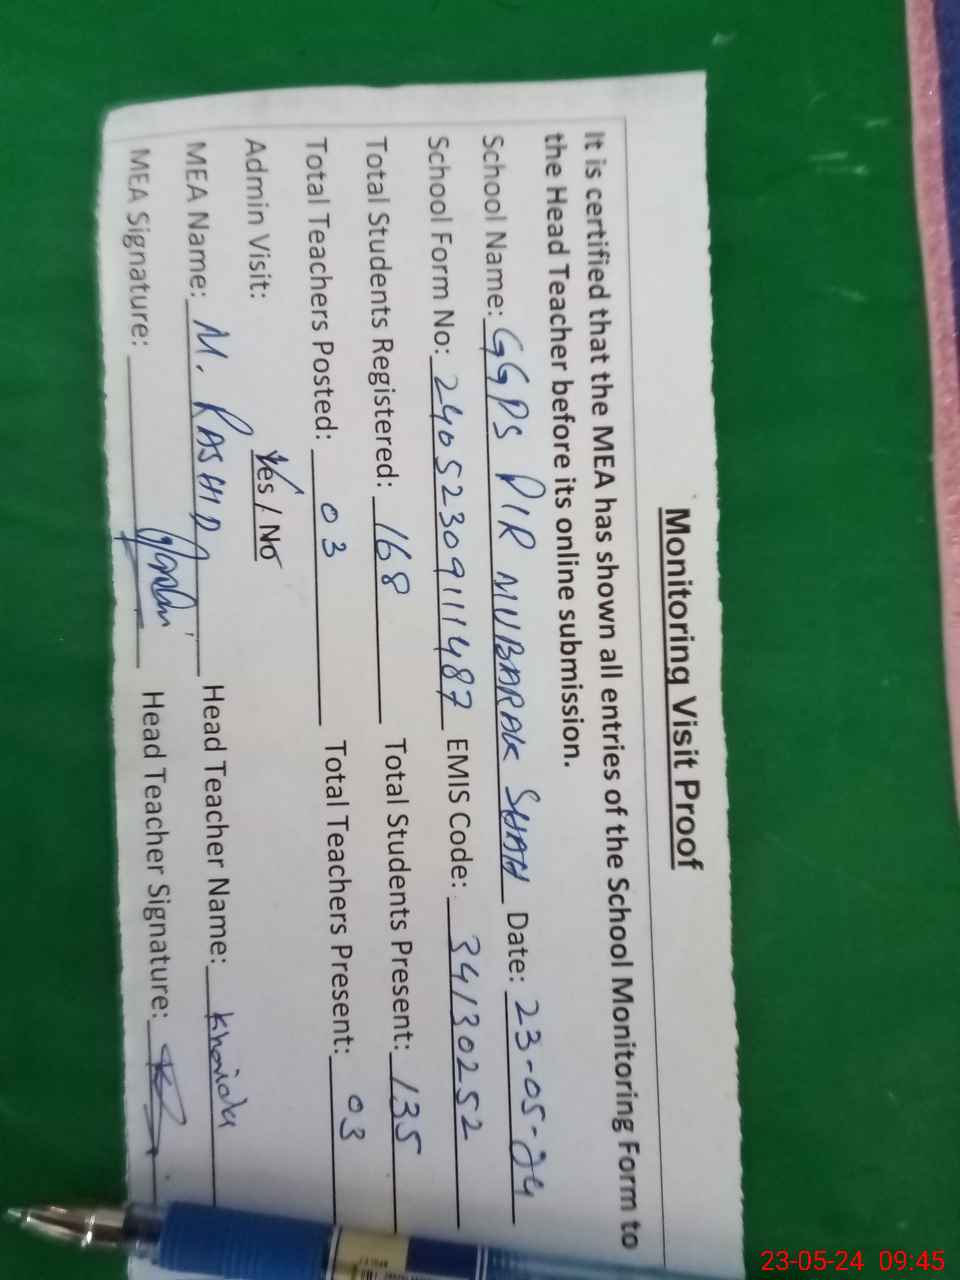 Monitoring Visit Proof
It is certified that the MEA has shown all entries of the School Monitoring Form to
the Head Teacher before its online submission.
School Name: GGPS PIR MUBARAK SHAH Date: 23-05-24
School Form No: 24052309111487 EMIS Code: 34130252
Total Students Registered: 168 Total Students Present: 135
Total Teachers Posted: 03 Total Teachers Present: 03
Admin Visit: Yes / No
MEA Name: M. RASHID Head Teacher Name:
MEA Signature: Head Teacher Signature:
23-05-24 09:45